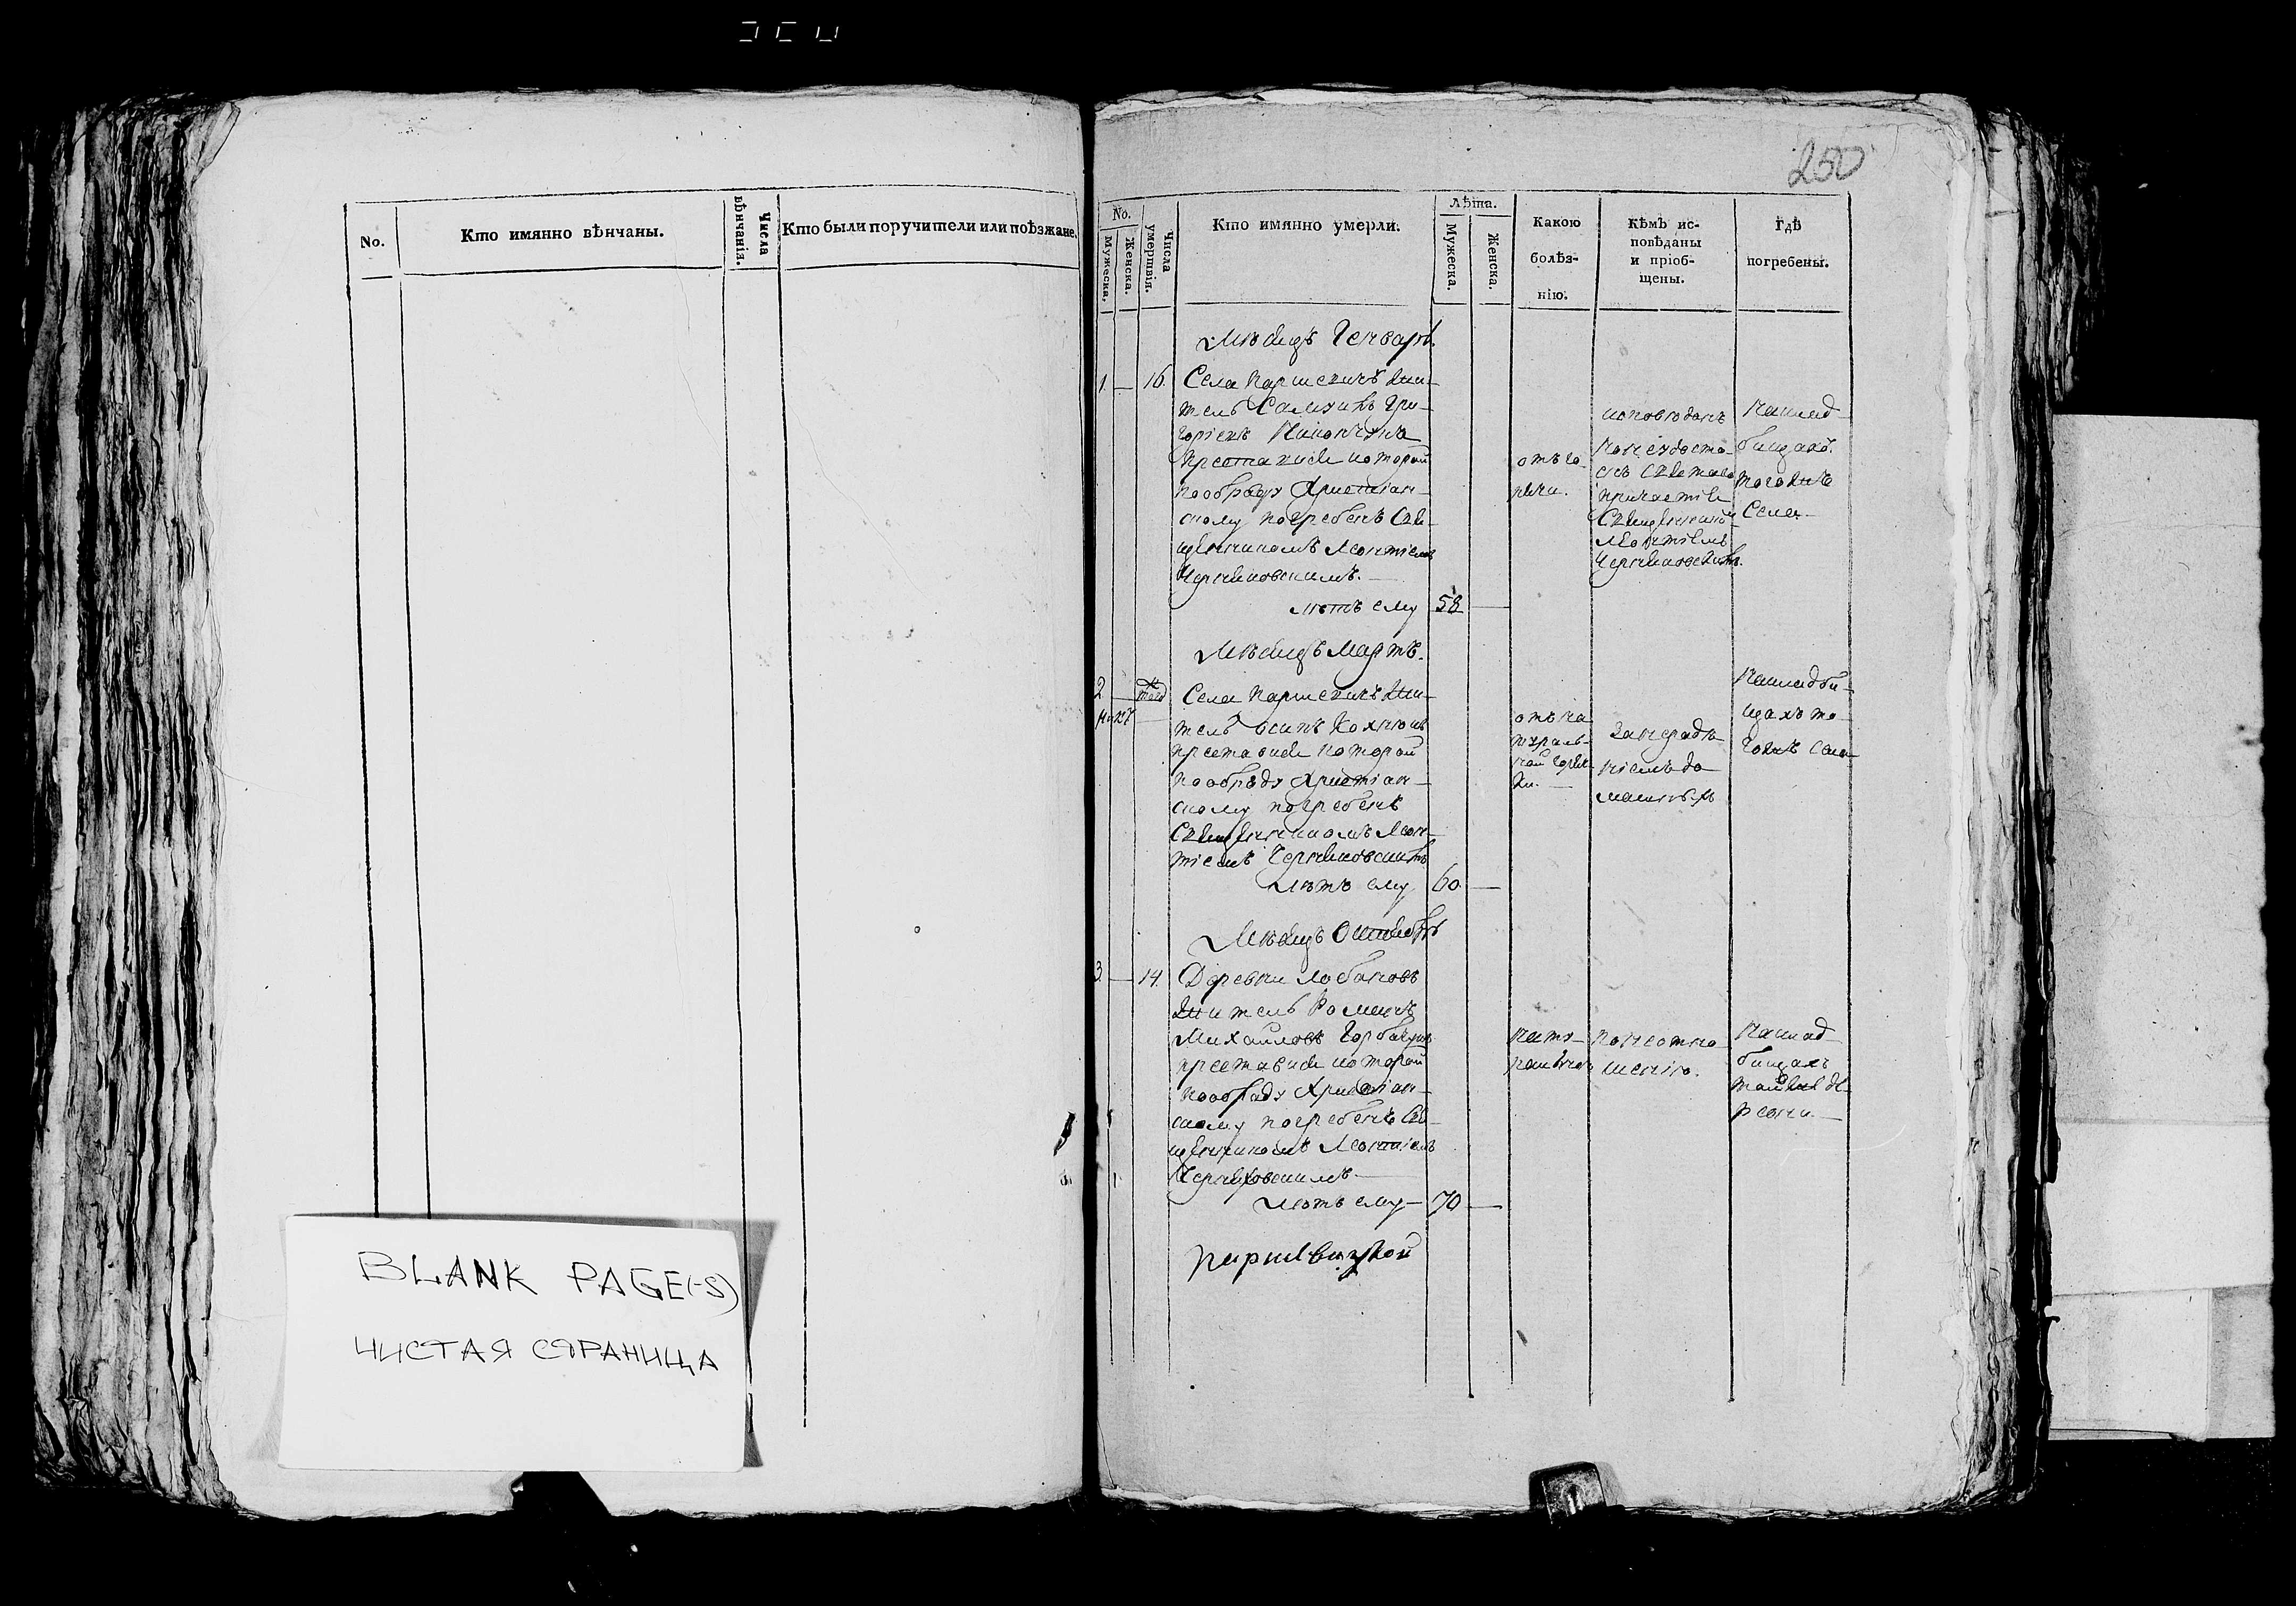 250
No.
Кто имянно вѣнчаны.
Числа вѣнчанія.
Кто были поручители или поѣзжане.
No.
Мужеска.
Женска.
Числа умертвія.
Кто имянно умерли.
Лѣта.
Мужеска.
Женска.
Какою болѣз-
нію.
Кѣмъ ис-
повѣданы
и пріоб-
щены.
Гдѣ
погребены.
Мѣсяцъ Генварь.
1. — 16. Села Паршевичъ жи-
тель
горіевъ
преставися которой
пообряду Христіан-
скому погребенъ Свя-
щенникомъ Леонтіемъ
Черняковскимъ. —
лѣтъ ему 58 —
отъ го-
рячи.
исповѣданъ
Святаго
причастія
Священникомъ
Леонтіемъ
Черняковскимъ.
на клад-
бищахъ
того же
Села.
Мѣсяцъ Мартъ.
2 — Села Паршевичъ жи-
тель
преставися которой
пообряду Христіан-
скому погребенъ
Священникомъ Леон-
тіемъ Черняковскимъ
лѣтъ ему 60 —
отъ на
тураль-
ной горяч-
ки. —
на кладби-
щахъ то-
гожъ села
Мѣсяцъ Октябрь
3. — 14. Деревни Лобановъ
житель Романъ
Михайловъ Горбачукъ
преставися которой
пообряду Христіан-
скому погребенъ Свя-
щенникомъ Леонтіемъ
Черняховскимъ —
лѣтъ ему — 70 —
на клад-
бищахъ
той же де-
ревни. —
BLANK PAGE(-S)
ЧИСТАЯ СТРАНИЦА